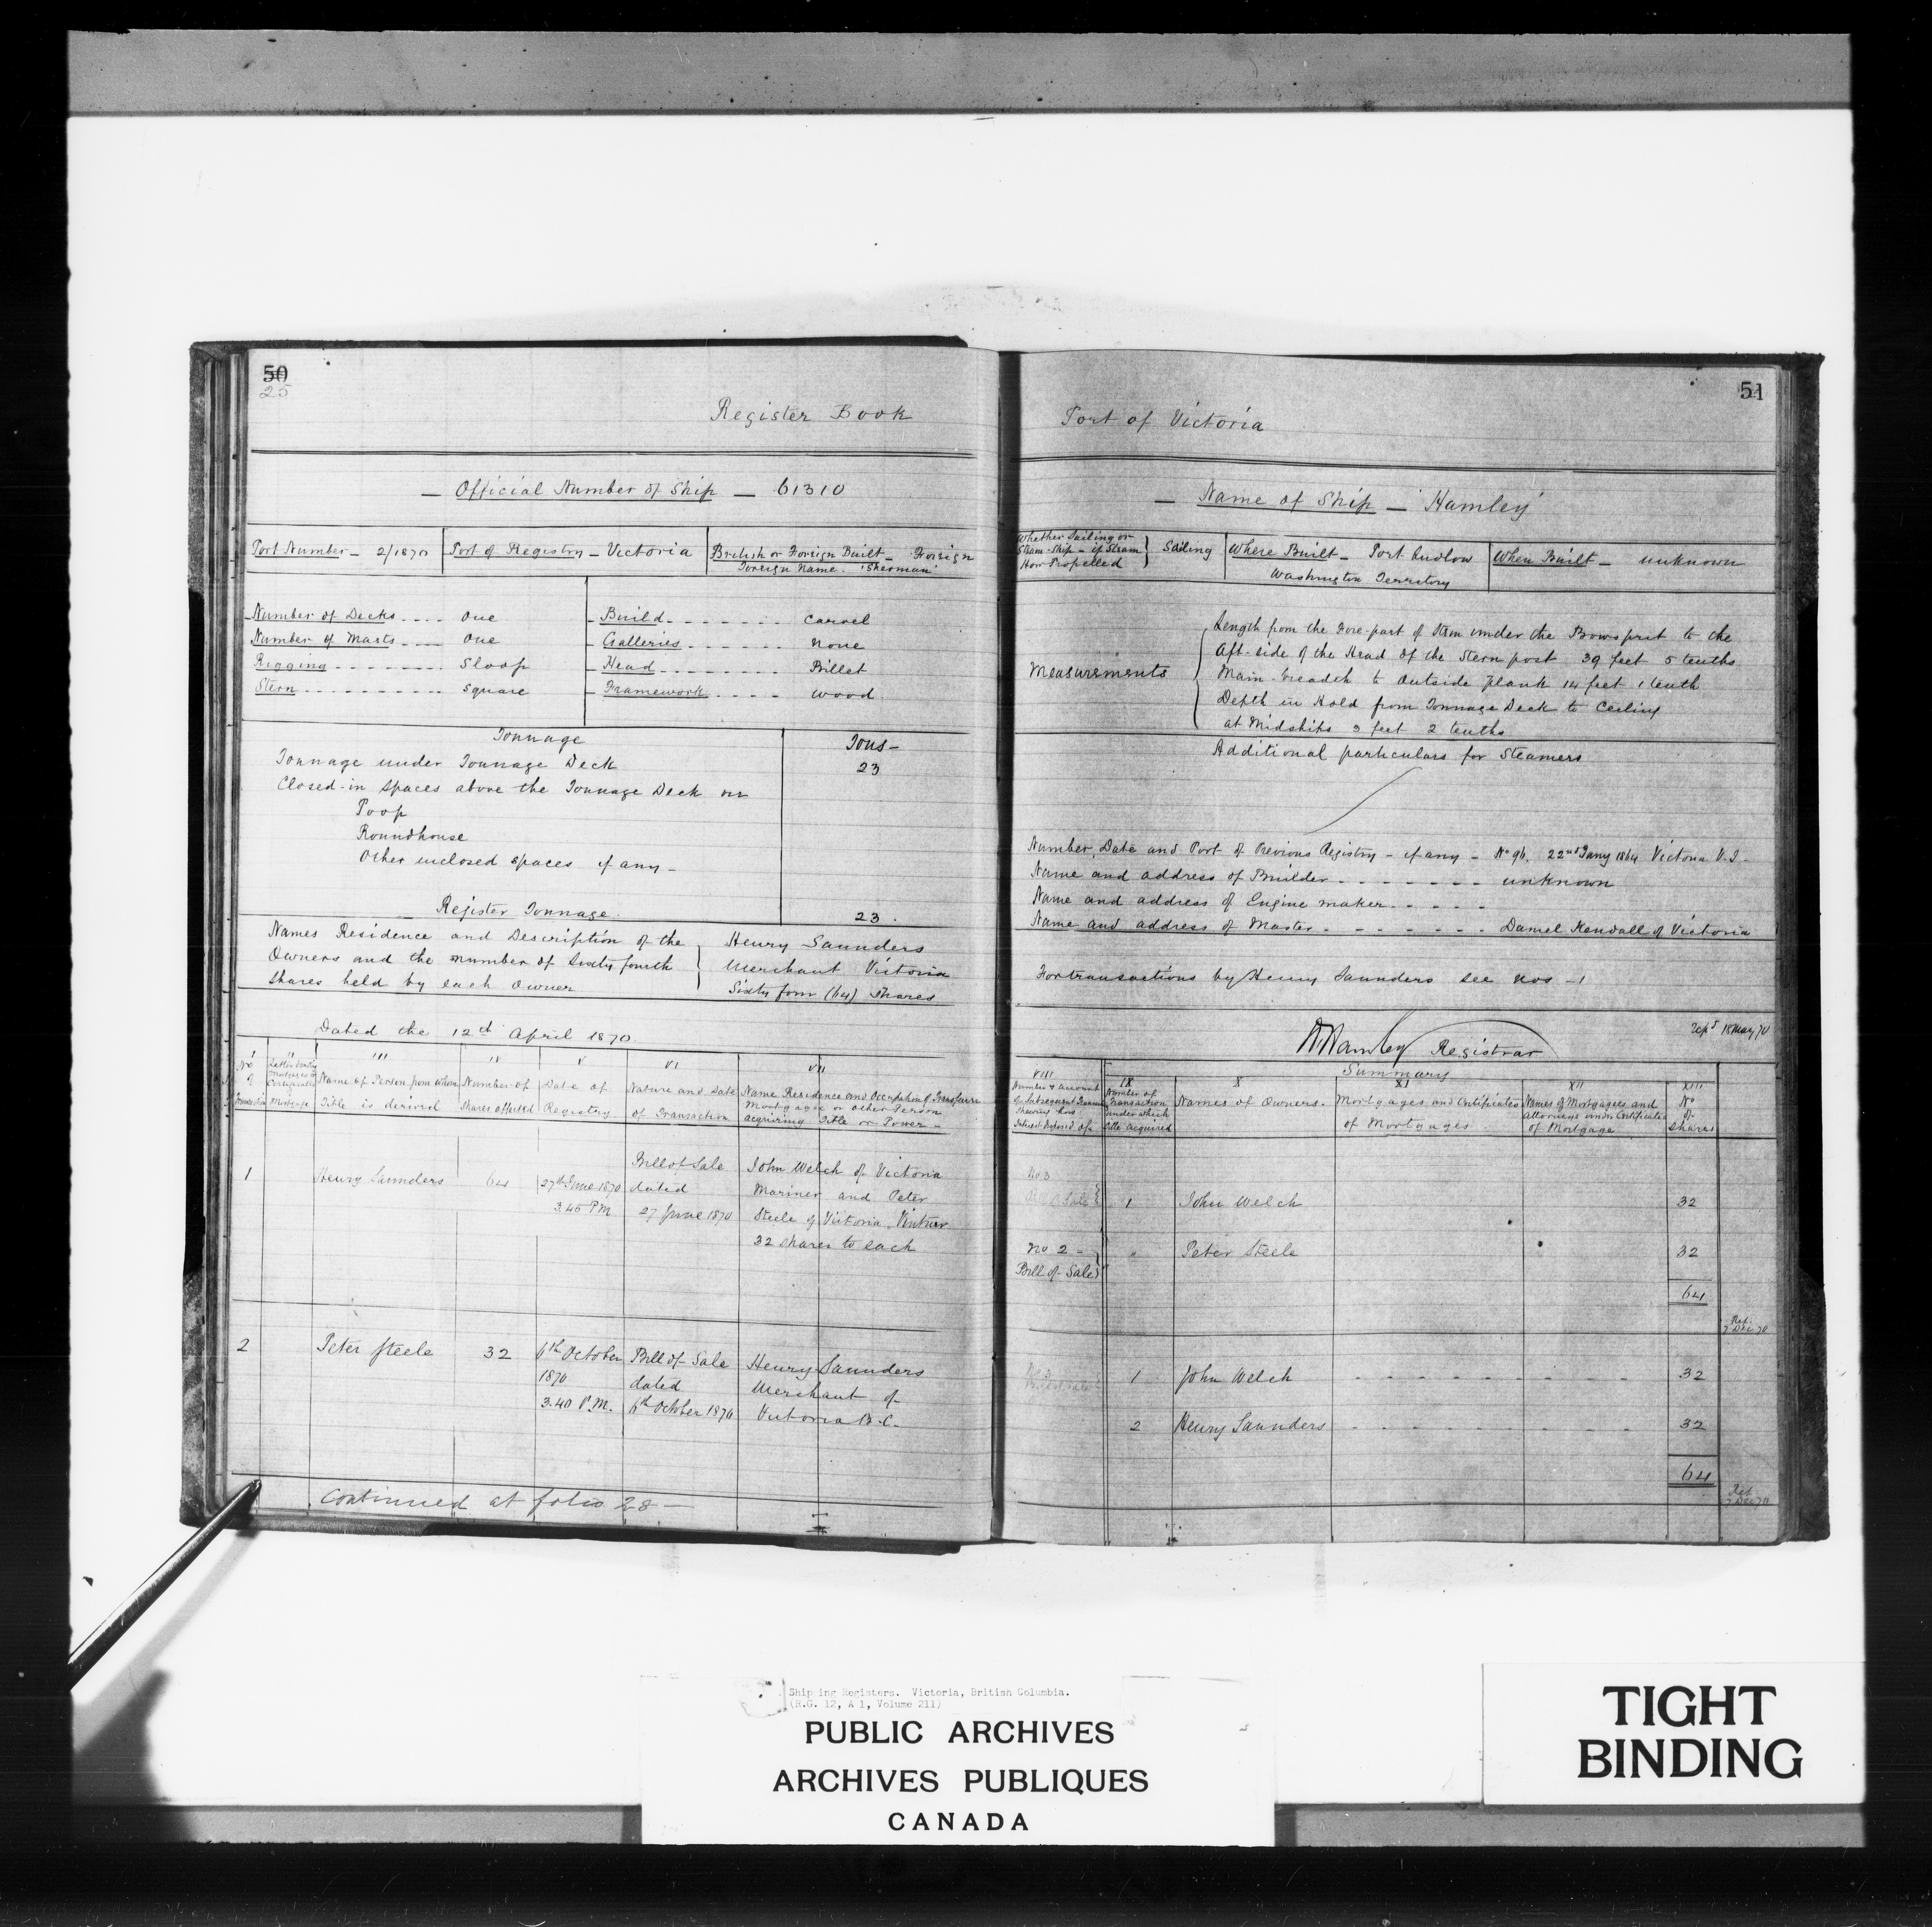 50
25
Register Book
Official Number of Ship — 61310
Port Number — 2/1870
Port of Registry — Victoria
British or Foreign Built — Foreign
Foreign Name. 'Sherman'
Number of Decks .... One
Number of Masts .... One
Rigging ........ Sloop
Stern .......... Square
Build ....... Carvel
Galleries ...... None
Head ........ Billet
Framework .... Wood
Tonnage
Tons —
Tonnage under Tonnage Deck 23
Closed-in spaces above the Tonnage Deck viz
Poop
Roundhouse
Other inclosed spaces if any —
Register Tonnage. 23.
Names Residence and Description of the
Owners and the number of Sixty fourth
shares held by each Owner
Henry Saunders
Merchant Victoria
Sixty four (64) Shares
Dated the 12th April 1870
III
Name of Person from whom
Title is derived
IV
Number of
Shares affected
V
Date of
Registry
VI
Nature and Date
of Transaction
VII
Name Residence and Occupation of Transferee
Mortgagee or other Person
acquiring Title or Power —
1
Henry Saunders
64
27th June 1870
3.45 PM
Bill of Sale
dated
27 June 1870
John Welch of Victoria
Mariner and Peter
Steele of Victoria, Vintner
32 shares to each
2
Peter Steele
32
6th October
1870
3.40 P.M.
Bill of Sale
dated
6th October 1870
Henry Saunders
Merchant of
Victoria B.C.
Continued at folio 28 —
51
Port of Victoria
— Name of Ship — 'Hamley'
Whether Sailing or
Steam Ship — if Steam
How Propelled
Sailing
Where Built — Port Ludlow
Washington Territory
When Built — unknown
Measurements
Length from the Fore-part of Stem under the Bowsprit to the
Aft-side of the Head of the Stern post 39 feet 5 tenths
Main-breadth to Outside Plank 14 feet 1 tenth
Depth in Hold from Tonnage Deck to Ceiling
at Midships 3 feet 2 tenths
Additional particulars for Steamers
Number, Date and Port of Previous Registry — if any — No 96. 22nd Jany 1864 Victoria V.I —
Name and address of Builder ....... unknown
Name and address of Engine maker .....
Name and address of Master ....... Daniel Kendall of Victoria
For transactions by Henry Saunders see Nos — 1
W Hamley Registrar
18 May 70
Summary
VIII
Number & amount
of Subsequent Transn
shewing how
Interest disposed of
IX
Number of
Transaction
under which
title acquired
X
Names of Owners.
XI
Mortgages and Certificates
of Mortgages
XII
Names of Mortgagees and
Attorneys under Certificates
of Mortgage
XIII
No
of
Shares
No 3
Bill of Sale
1
John Welch
32
No 2 —
Bill of Sale
"
Peter Steele
32
64
Ret
7 Dec 70
No 3
1
John Welch
32
2
Henry Saunders
32
64
Ret
7 Dec 70
Shipping Registers. Victoria, British Columbia.
(R.G. 12, A 1, Volume 211)
PUBLIC ARCHIVES
ARCHIVES PUBLIQUES
CANADA
TIGHT
BINDING